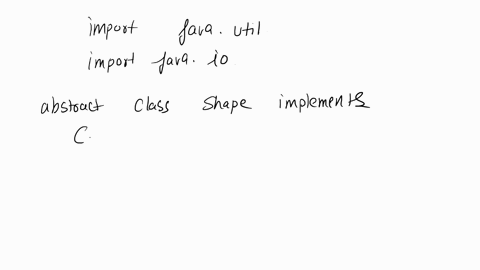 import java.util
import java.io
abstract class Shape implements
C.